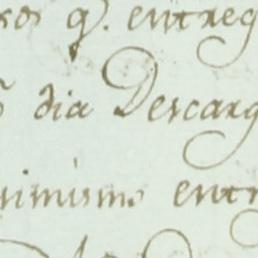 q. entreg
dia Descarg
nimismo entr